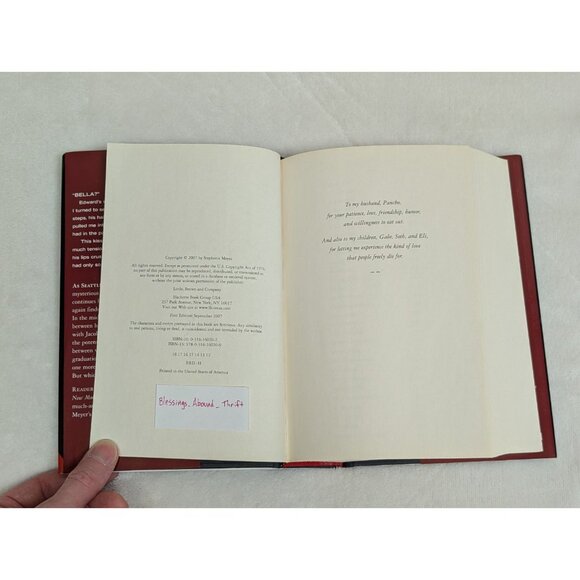 "BELLA?"
Edward's
I turned to
steps, his ha
pulled me in
had in the pa
This kiss
much tension
his lips crus
had only so
As Seattl
mysterious
continues
again find
In the mi
between l
with Jaco
the poten
between v
graduation
one more
But whic
Reader
New Ma
much-a
Meyer's
Copyright © 2007 by Stephenie Meyer
All rights reserved. Except as permitted under the U.S. Copyright Act of 1976,
no part of this publication may be reproduced, distributed, or transmitted in
any form or by any means, or stored in a database or retrieval system,
without the prior written permission of the publisher.
Little, Brown and Company
Hachette Book Group USA
237 Park Avenue, New York, NY 10017
Visit our Web site at www.lb-teens.com
First Edition: September 2007
The characters and events portrayed in this book are fictitious. Any similarity
to real persons, living or dead, is coincidental and not intended by the author.
ISBN-10: 0-316-16020-2
ISBN-13: 978-0-316-16020-9
Printed in the United States of America
Blessings_Abound_Thrift
To my husband, Pancho,
for your patience, love, friendship, humor,
and willingness to eat out.
And also to my children, Gabe, Seth, and Eli,
for letting me experience the kind of love
that people freely die for.